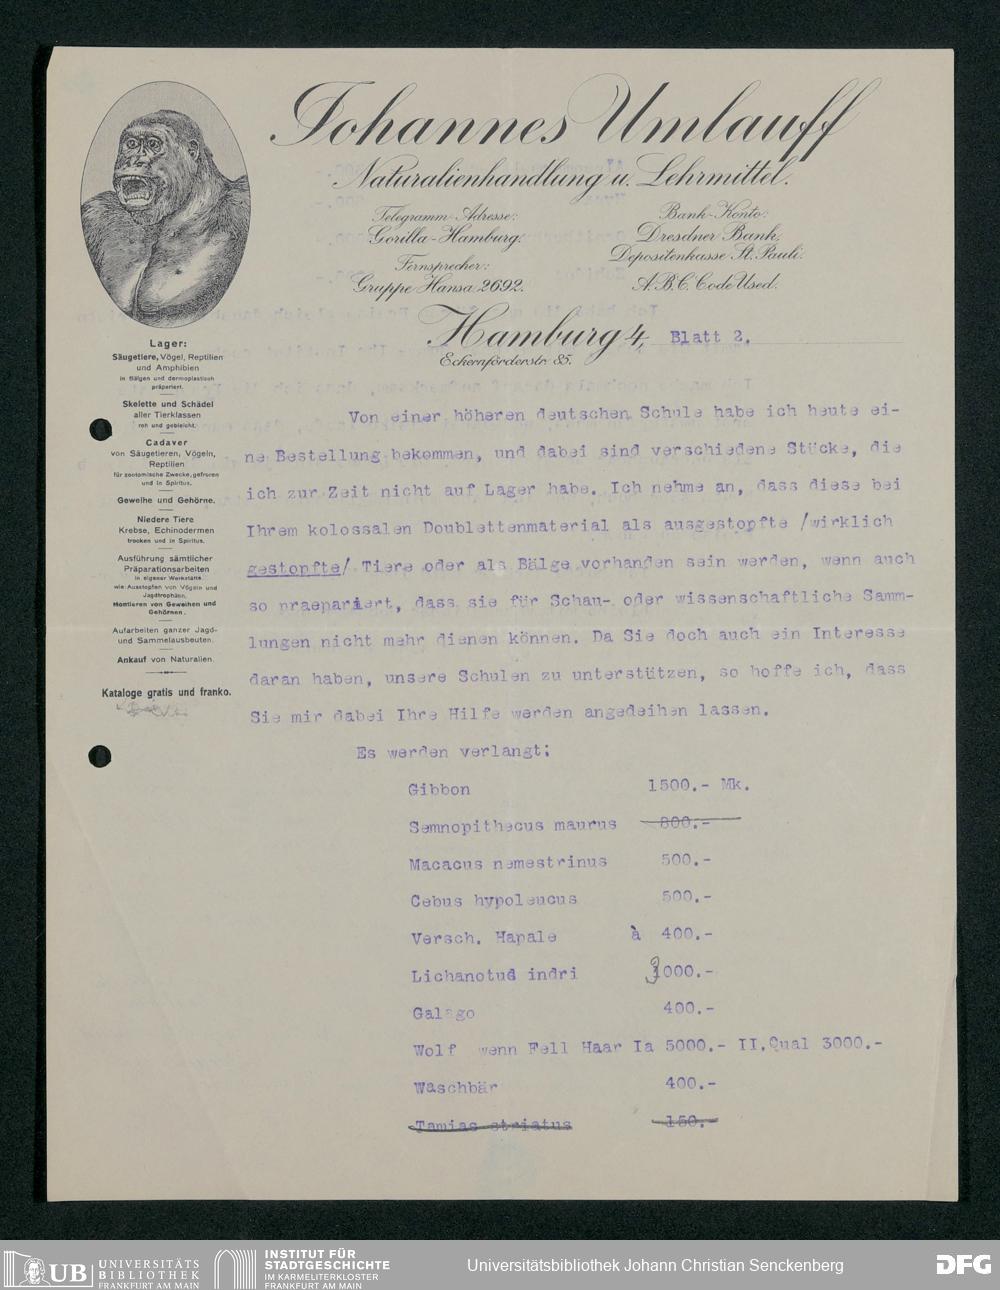 Johannes Umlauff
Naturalienhandlung u. Lehrmittel.
Telegramm-Adresse:
Gorilla-Hamburg.
Fernsprecher:
Gruppe Hansa 2692.
Bank-Konto:
Dresdner Bank,
Depositenkasse St. Pauli.
A.B.C. Code Used.
Hamburg 4, Blatt 2.
Eckernförderstr. 85.
Lager:
Säugetiere, Vögel, Reptilien
und Amphibien
in Bälgen und dermoplastisch
präpariert.
Skelette und Schädel
aller Tierklassen
roh und gebleicht.
Cadaver
von Säugetieren, Vögeln,
Reptilien
für zootomische Zwecke, gefroren
und in Spiritus.
Geweihe und Gehörne.
Niedere Tiere
Krebse, Echinodermen
trocken und in Spiritus.
Ausführung sämtlicher
Präparationsarbeiten
in eigener Werkstätte
wie: Ausstopfen von Vögeln und
Jagdtrophäen,
Montieren von Geweihen und
Gehörnen.
Aufarbeiten ganzer Jagd-
und Sammelausbeuten.
Ankauf von Naturalien.
Kataloge gratis und franko.
Von einer höheren deutschen Schule habe ich heute ei-
ne Bestellung bekommen, und dabei sind verschiedene Stücke, die
ich zur Zeit nicht auf Lager habe. Ich nehme an, dass diese bei
Ihrem kolossalen Doublettenmaterial als ausgestopfte /wirklich
gestopfte/ Tiere oder als Bälge vorhanden sein werden, wenn auch
so praepariert, dass sie für Schau- oder wissenschaftliche Samm-
lungen nicht mehr dienen können. Da Sie doch auch ein Interesse
daran haben, unsere Schulen zu unterstützen, so hoffe ich, dass
Sie mir dabei Ihre Hilfe werden angedeihen lassen.
Es werden verlangt:
Gibbon 1500.- Mk.
Semnopithecus maurus 800.-
Macacus nemestrinus 500.-
Cebus hypoleucus 500.-
Versch. Hapale à 400.-
Lichanotus indri 3000.-
Galago 400.-
Wolf wenn Fell Haar Ia 5000.- II.Qual 3000.-
Waschbär 400.-
Tamias striatus 150.-
UB UNIVERSITÄTS
BIBLIOTHEK
FRANKFURT AM MAIN
INSTITUT FÜR
STADTGESCHICHTE
IM KARMELITERKLOSTER
FRANKFURT AM MAIN
Universitätsbibliothek Johann Christian Senckenberg
DFG